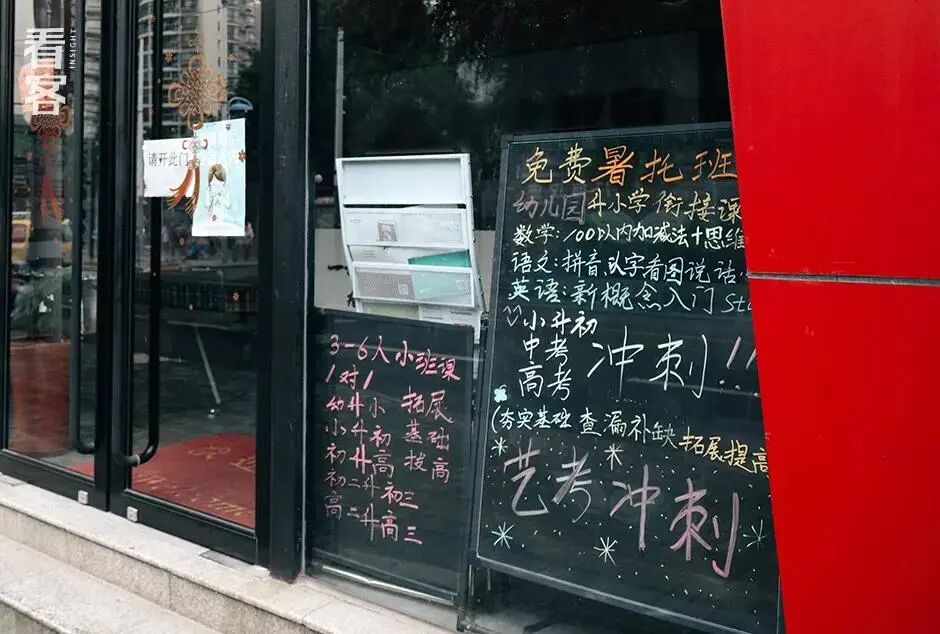 看客
INSIGHT
请开此门
免费暑托班
幼儿园升小学衔接课
数学:100以内加减法+思维
语文:拼音、识字看图说话
英语:新概念入门 Sta
小升初
中考
高考
冲刺!!!
(夯实基础 查漏补缺 拓展提高
艺考冲刺
3-6人小班课
1对1
幼升小
小升初
初升高
初二升初三
高二升高三
拓展
基础
拔高